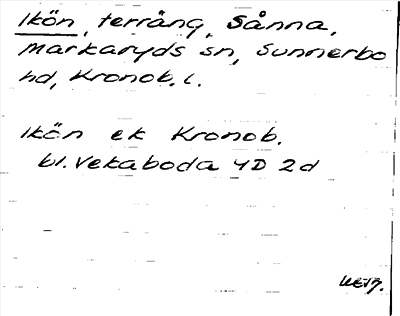 Ikön, terräng, Sånna,
Markaryds sn, Sunnerbo
hd, Kronob. l.
Ikön ek Kronob.
bl. Vekaboda 4D 2d